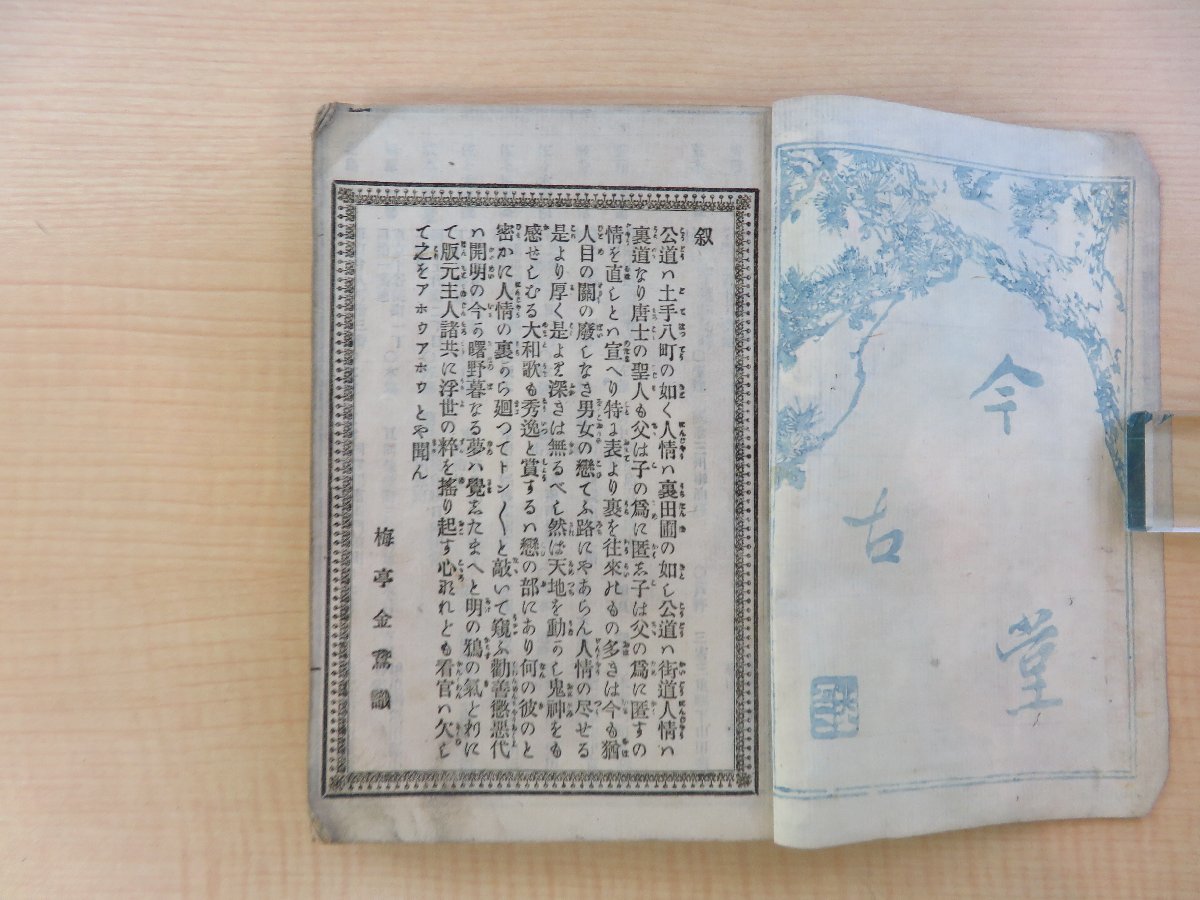 今古堂
叙
公道ハ土手八町の如く人情ハ裏田圃の如し公道ハ街道人情ハ
裏道なり唐士の聖人も父は子の爲に匿し子は父の爲に匿すの
情を直しとハ宣へり特に表より裏を往來れもの多きは今も猶
人目の關の廢しなき男女の戀てふ路にやあらん人情の尽せる
是より厚く是より深きは無るべし然ば天地を動かし鬼神をも
感せしむる大和歌も秀逸と賞するハ戀の部にあり何の彼のと
密かに人情の裏から廻つてトン〳〵と敲いて窺ふ勸善懲悪代
ハ開明の今の曙野暮なる夢ハ覺したまへと明の鴉の氣と
て版元主人諸共に浮世の粋を搖り起す心なれとも看官ハ欠し
て之をアホウアホウとや聞ん
梅亭金鵞識